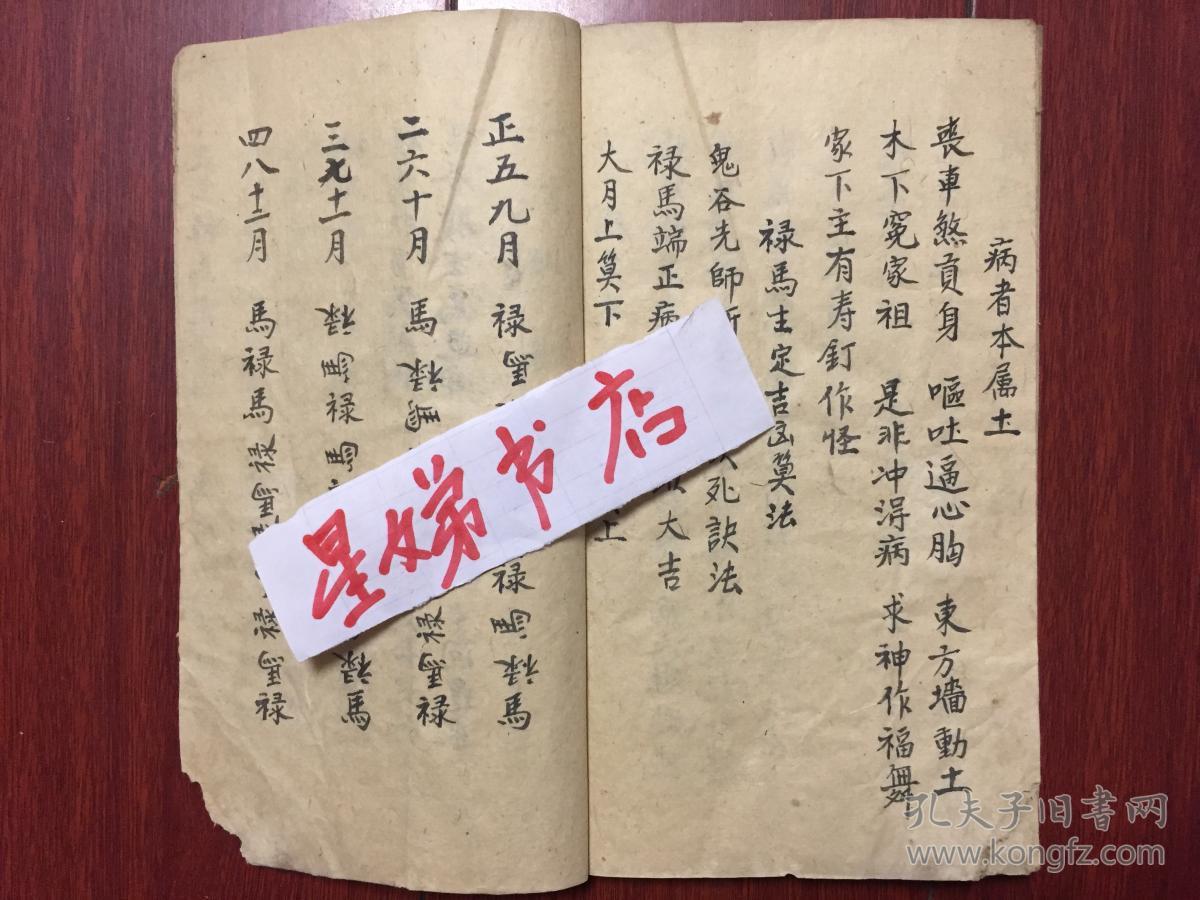 病者本属土
喪車煞貢身 嘔吐逼心胸 東方墻動土
木下冤家祖 是非冲得病 求神作福無
家下主有寿釘作怪
禄馬生定吉凶算法
鬼谷先師 死訣法
禄馬端正病 大吉
大月上算下 上
正五九月 禄馬 禄馬禄馬
二六十月 馬禄馬 禄馬禄
三七十一月 禄馬禄馬 禄馬
四八十二月 馬禄馬禄馬 禄馬禄
星女弟书店
孔夫子旧书网
www.kongfz.com